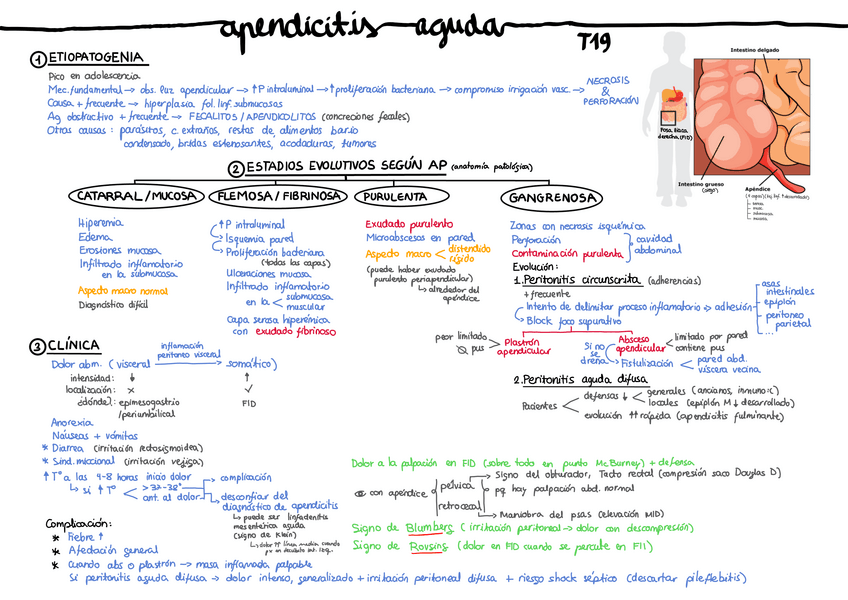 apendicitis aguda
T19
1 ETIOPATOGENIA
Pico en adolescencia
Mec. fundamental → obs. luz apendicular → ↑P intraluminal → ↑proliferación bacteriana → compromiso irrigación vasc. → NECROSIS & PERFORACIÓN
Causa + frecuente → hiperplasia fol. linf. submucosos
Ag. obstructivo + frecuente → FECALITOS / APENDICOLITOS (concreciones fecales)
Otras causas: parásitos, c. extraños, restos de alimentos bario
condensado, bridas estenosantes, acodaduras, tumores
Intestino delgado
Fosa iliaca
derecha (FID)
Intestino grueso
(ciego)
Apéndice
2 ESTADIOS EVOLUTIVOS SEGÚN AP (anatomía patológica)
CATARRAL / MUCOSA
Hiperemia
Edema
Erosiones mucosa
Infiltrado inflamatorio
en la submucosa
Aspecto macro normal
Diagnóstico difícil
FLEMOSA / FIBRINOSA
↑P intraluminal
Isquemia pared
Proliferación bacteriana
(todas las capas)
Ulceraciones mucosa
Infiltrado inflamatorio
en la < submucosa
muscular
Capa serosa hiperémica
con exudado fibrinoso
PURULENTA
Exudado purulento
Microabscesos en pared
Aspecto macro < distendido
rígido
(puede haber exudado
purulento periapendicular)
↳ alrededor del
apéndice
GANGRENOSA
Zonas con necrosis isquémica
Perforación
Contaminación purulenta
cavidad
abdominal
Evolución:
1. Peritonitis circunscrita (adherencias)
+ frecuente
Intento de delimitar proceso inflamatorio → adhesión
asas
intestinales
epiplón
peritoneo
parietal
...
Block foco supurativo
peor limitado
Ø pus
> Plastrón
apendicular
Si no
se
drena
Absceso
apendicular
< limitado por pared
contiene pus
Fistulización < pared abd.
víscera vecina
2. Peritonitis aguda difusa
Pacientes < defensas ↓ < generales (ancianos, inmuno ↓)
locales (epiplón M ↓ desarrollado)
evolución ↑↑ rápida (apendicitis fulminante)
3 CLÍNICA
inflamación
peritoneo visceral
Dolor abm. (visceral → somático)
intensidad: ↓ ↑
localización: × ✓
¿dónde?: epimesogastrio FID
/periumbilical
Anorexia
Náuseas + vómitos
* Diarrea (irritación rectosigmoidea)
* Sínd. miccional (irritación vejiga)
↑Tº a las 4-8 horas inicio dolor
↳ si ↑Tº < >37-38º
ant. al dolor
→ complicación
→ desconfiar del
diagnóstico de apendicitis
↳ puede ser linfadenitis
mesentérica aguda
(signo de Klein)
Complicación:
* Fiebre ↑
* Afectación general
* Cuando abs o plastrón → masa inflamada palpable
Si peritonitis aguda difusa → dolor intenso, generalizado + irritación peritoneal difusa + riesgo shock séptico (descartar pileflebitis)
Dolor a la palpación en FID (sobre todo en punto McBurney) + defensa
con apéndice
pélvica
retrocecal
Signo del obturador, Tacto rectal (compresión saco Douglas D)
pq hay palpación abd. normal
Maniobra del psoas (elevación MID)
Signo de Blumberg (irritación peritoneal → dolor con descompresión)
Signo de Rovsing (dolor en FID cuando se percute en FII)